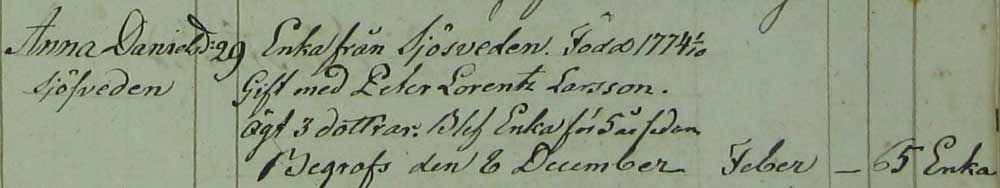 Anna Danielsdr 29 Enka från Sjösveden. Född 1774 1/10
Sjösveden Gift med Peter Lorentz Larsson.
Ägt 3 döttrar. Blef Enka för 5 år sedan
Begrofs den 8 December Feber — 65 Enka